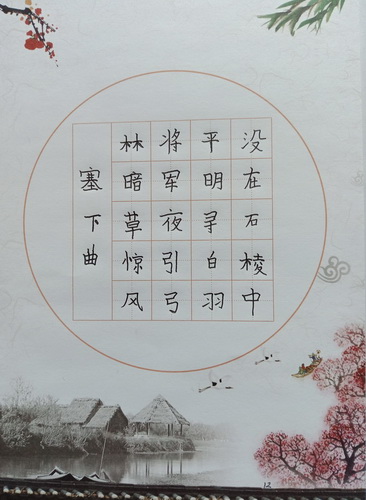 塞下曲
林暗草惊风
将军夜引弓
平明寻白羽
没在石棱中